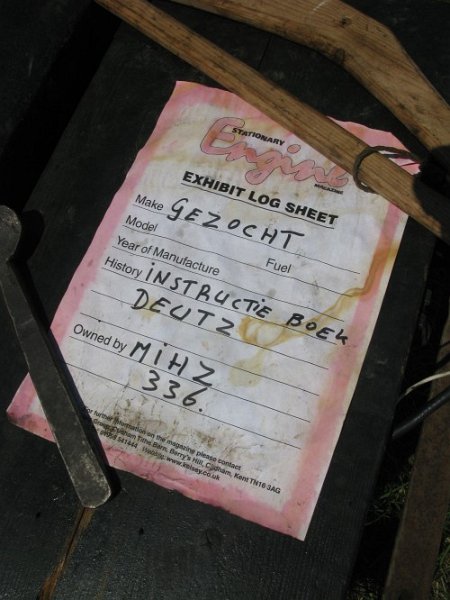 STATIONARY
Engine
MAGAZINE
EXHIBIT LOG SHEET
Make GEZOCHT
Model Fuel
Year of Manufacture
History INSTRUCTIE BOEK
DEUTZ
Owned by MIHZ
336.
For further information on the magazine please contact
Group, Cudham Tithe Barn, Berry's Hill, Cudham, Kent TN16 3AG
541444 Website: www.kelsey.co.uk